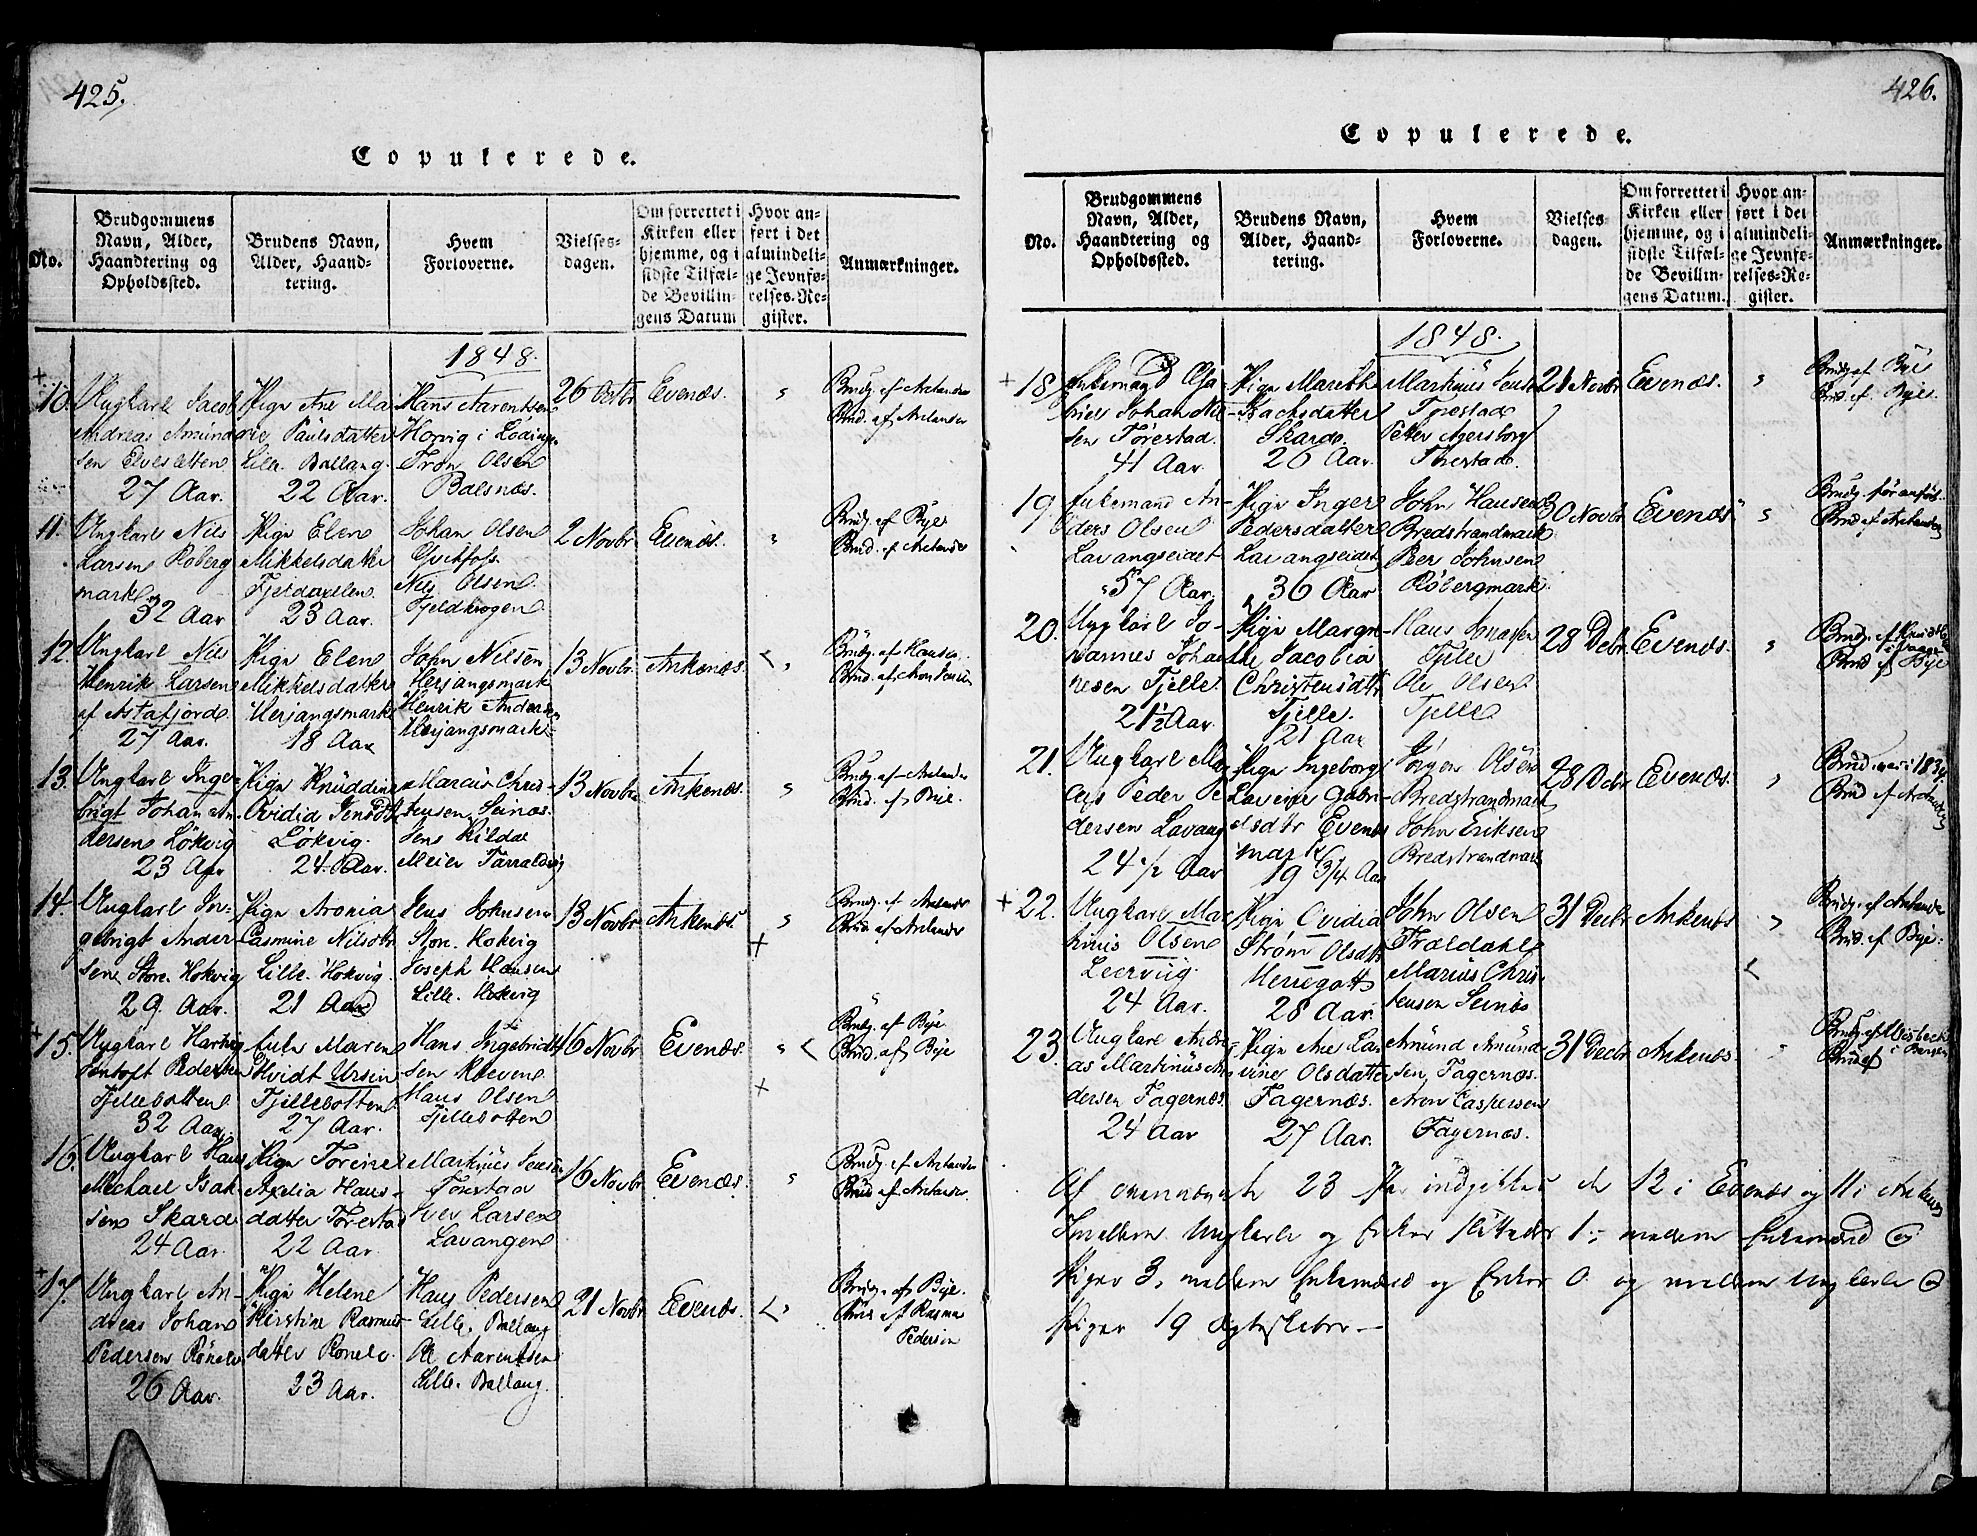 425.
Copulerede.
No.
Brudgommens Navn, Alder, Haandtering og Opholdssted.
Brudens Navn, Alder, Haandtering.
Hvem Forloverne.
Vielsesdagen.
Om forrettet i Kirken eller hjemme, og i sidste Tilfælde Bevillingens Datum
Hvor anført i det almindelige Jevnførelses-Register.
Anmærkninger.
1848.
10.
Ungkarl Jacob
Andreas Amund
sen Elvesletten
27 Aar.
Pige Ane Ma
rie Paulsdatter
Lille Ballang.
22 Aar.
Hans Aarentsen
Horvig i Lødingen
Tron Olsen
Balsnæs.
26 Octbr
Evenæs.
"
Brudg. af Aalander
Brud. af Aalander
11.
Ungkarl Nils
Larsen Roberg
mark
32 Aar
Pige Elen
Mikkelsdatter
Fjeldaxelen
23 Aar.
Johan Olsen
Nils Olsen
Fjeldkrogen
2 Novbr.
Evenæs.
"
Brudg. af Bye
Brud. af Aalander
12.
Ungkarl Nils
Henrik Larsen
af Astafjord
27 Aar.
Pige Elen
Mikkelsdatter
Herjangsmark
18 Aar
John Nilsen
Herjangsmark
Henrik Andersen
Herjangsmark
13 Novbr.
Ankenæs.
<
"
Brudg. af Hansen
Brud. af
13.
Ungkarl Inge
brigt Johan An
dersen Løkvig
23 Aar
Pige Knuddine
Ovidia Jensdtr
Løkvig.
24 Aar.
Marcus Chris-
tensen Seinæs.
Jens Kildal
Meier Taraldsvig
13 Novbr
Ankenæs.
"
Brudg. af Aalander
Brud. af Bye.
14.
Ungkarl In-
gebrigt Ander-
sen Store Hokvig
29. Aar.
Pige Aronia
Casmine Nilsdtr
Lille Hokvig.
21 Aar
Jens Johnsen
Store Hokvig
Joseph Hansen
Lille Hokvig
13 Novbr
Ankenæs.
"
+
Brudg. af Aalander
Brud af Aalander
+
15.
Ungkarl Hartvig
Sontoft Pedersen
Fjellebotten
32 Aar
Enke Maren
Hvidt Ursin
Fjellebotten
27 Aar.
Hans Ingebrigt
sen
Hans Olsen
Fjellebotten
16 Novbr
Evenæs.
"
<
+
Brudg. af Bye
Brud. af Bye
16.
Ungkarl Hans
Michael Isak
sen Skard
24 Aar.
Pige Torine
Axelia Hans-
datter Torestad
22 Aar.
Martinus Jensen
Torestad
Iver Larsen
Lavangen
16 Novbr
Evenæs.
"
Brudg. af Aalander
Brud af Aalander
+
17.
Ungkarl An-
dreas Johan
Pedersen Rånelv
26 Aar.
Pige Helene
Kirstine Rasmus-
datter Rånelv.
23 Aar.
Hans Pedersen
Lille Ballang
Ole Aarentsen
Lille Ballang.
21 Novbr
Evenæs.
<
"
Brudg. af Bye.
Brud af Rasmus
Pedersen
426.
Copulerede.
No.
Brudgommens Navn, Alder, Haandtering og Opholdssted.
Brudens Navn, Alder, Haandtering.
Hvem Forloverne.
Vielsesdagen.
Om forrettet i Kirken eller hjemme, og i sidste Tilfælde Bevillingens Datum.
Hvor anført i det almindelige Jevnførelses-Register.
Anmærkninger.
1848.
+ 18.
Enkemand
Johan Niel
sen Torestad.
41 Aar.
Pige Marith
Isachsdatter
Skard.
26 Aar.
Martinus Jensen
Torestad
Petter Agersborg
Torestad.
21 Novbr
Evenæs.
"
Brudg. af Bye
Brud. af Bye.
19.
Enkemand An-
ders Olsen
Lavangseidet
57 Aar.
Pige Inger
Pedersdatter
Lavangseidet
36 Aar
John Hansen
Bredstrandmark
Peer Johnsen
Robergmark.
30 Novbr
Evenæs
"
Brudg. før anført.
Brud af Aalander
20.
Ungkarl Jo-
hannes Johan
nesen Tjelle.
21½ Aar.
Pige Margre-
the Jacobia
Christensdtr
Tjelle.
21 Aar
Hans
Tjelle
Ole Olsen
Tjelle
28 Debr.
Evenæs.
"
Brud af Bye
21.
Ungkarl
Peder Pe
dersen Lavang
24 1/2 Aar
Pige Ingeborg
Laveine Gabri-
elsdtr Evenes
mark
19 3/4 Aar
Jørgen Olsen
Bredstrandmark
John Eriksen
Bredstrandmark
28 Debr
Evenæs.
"
1839.
Brud af Aalander
+ 22.
Ungkarl Mar
thinus Olsen
Leervig.
24 Aar.
Pige Ovidia
Strøm Olsdtr
28 Aar.
John Olsen
Fraldahl
Marius Chris
tensen Seines
31 Decbr
Ankenæs
"
<
Brudg. af Aalander
Brud. af Bye.
23.
Ungkarl Andre-
as Martinus An
dersen Fagernæs.
24 Aar
Pige Ane La-
vine Olsdatter
Fagernæs.
27 Aar.
Amund Amund
sen, Fagernæs.
Aron Caspersen
Fagernæs.
31 Decbr
Ankenæs.
"
i Bergen
Brud af
Af ovennævnte 23 Par indgikkes de 12 i Evenæs og 11 i Ankenæs
Imellem Ungkarle og Enker 1; mellem Enkemænd og
Piger 3, mellem Enkemænd og Enker 0. og mellem Ungkarle og
Piger 19 Ægteskaber.—